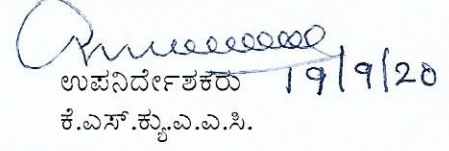 ಉಪನಿರ್ದೇಶಕರು 19/9/20
ಕೆ.ಎಸ್.ಕ್ಯು.ಎ.ಎ.ಸಿ.